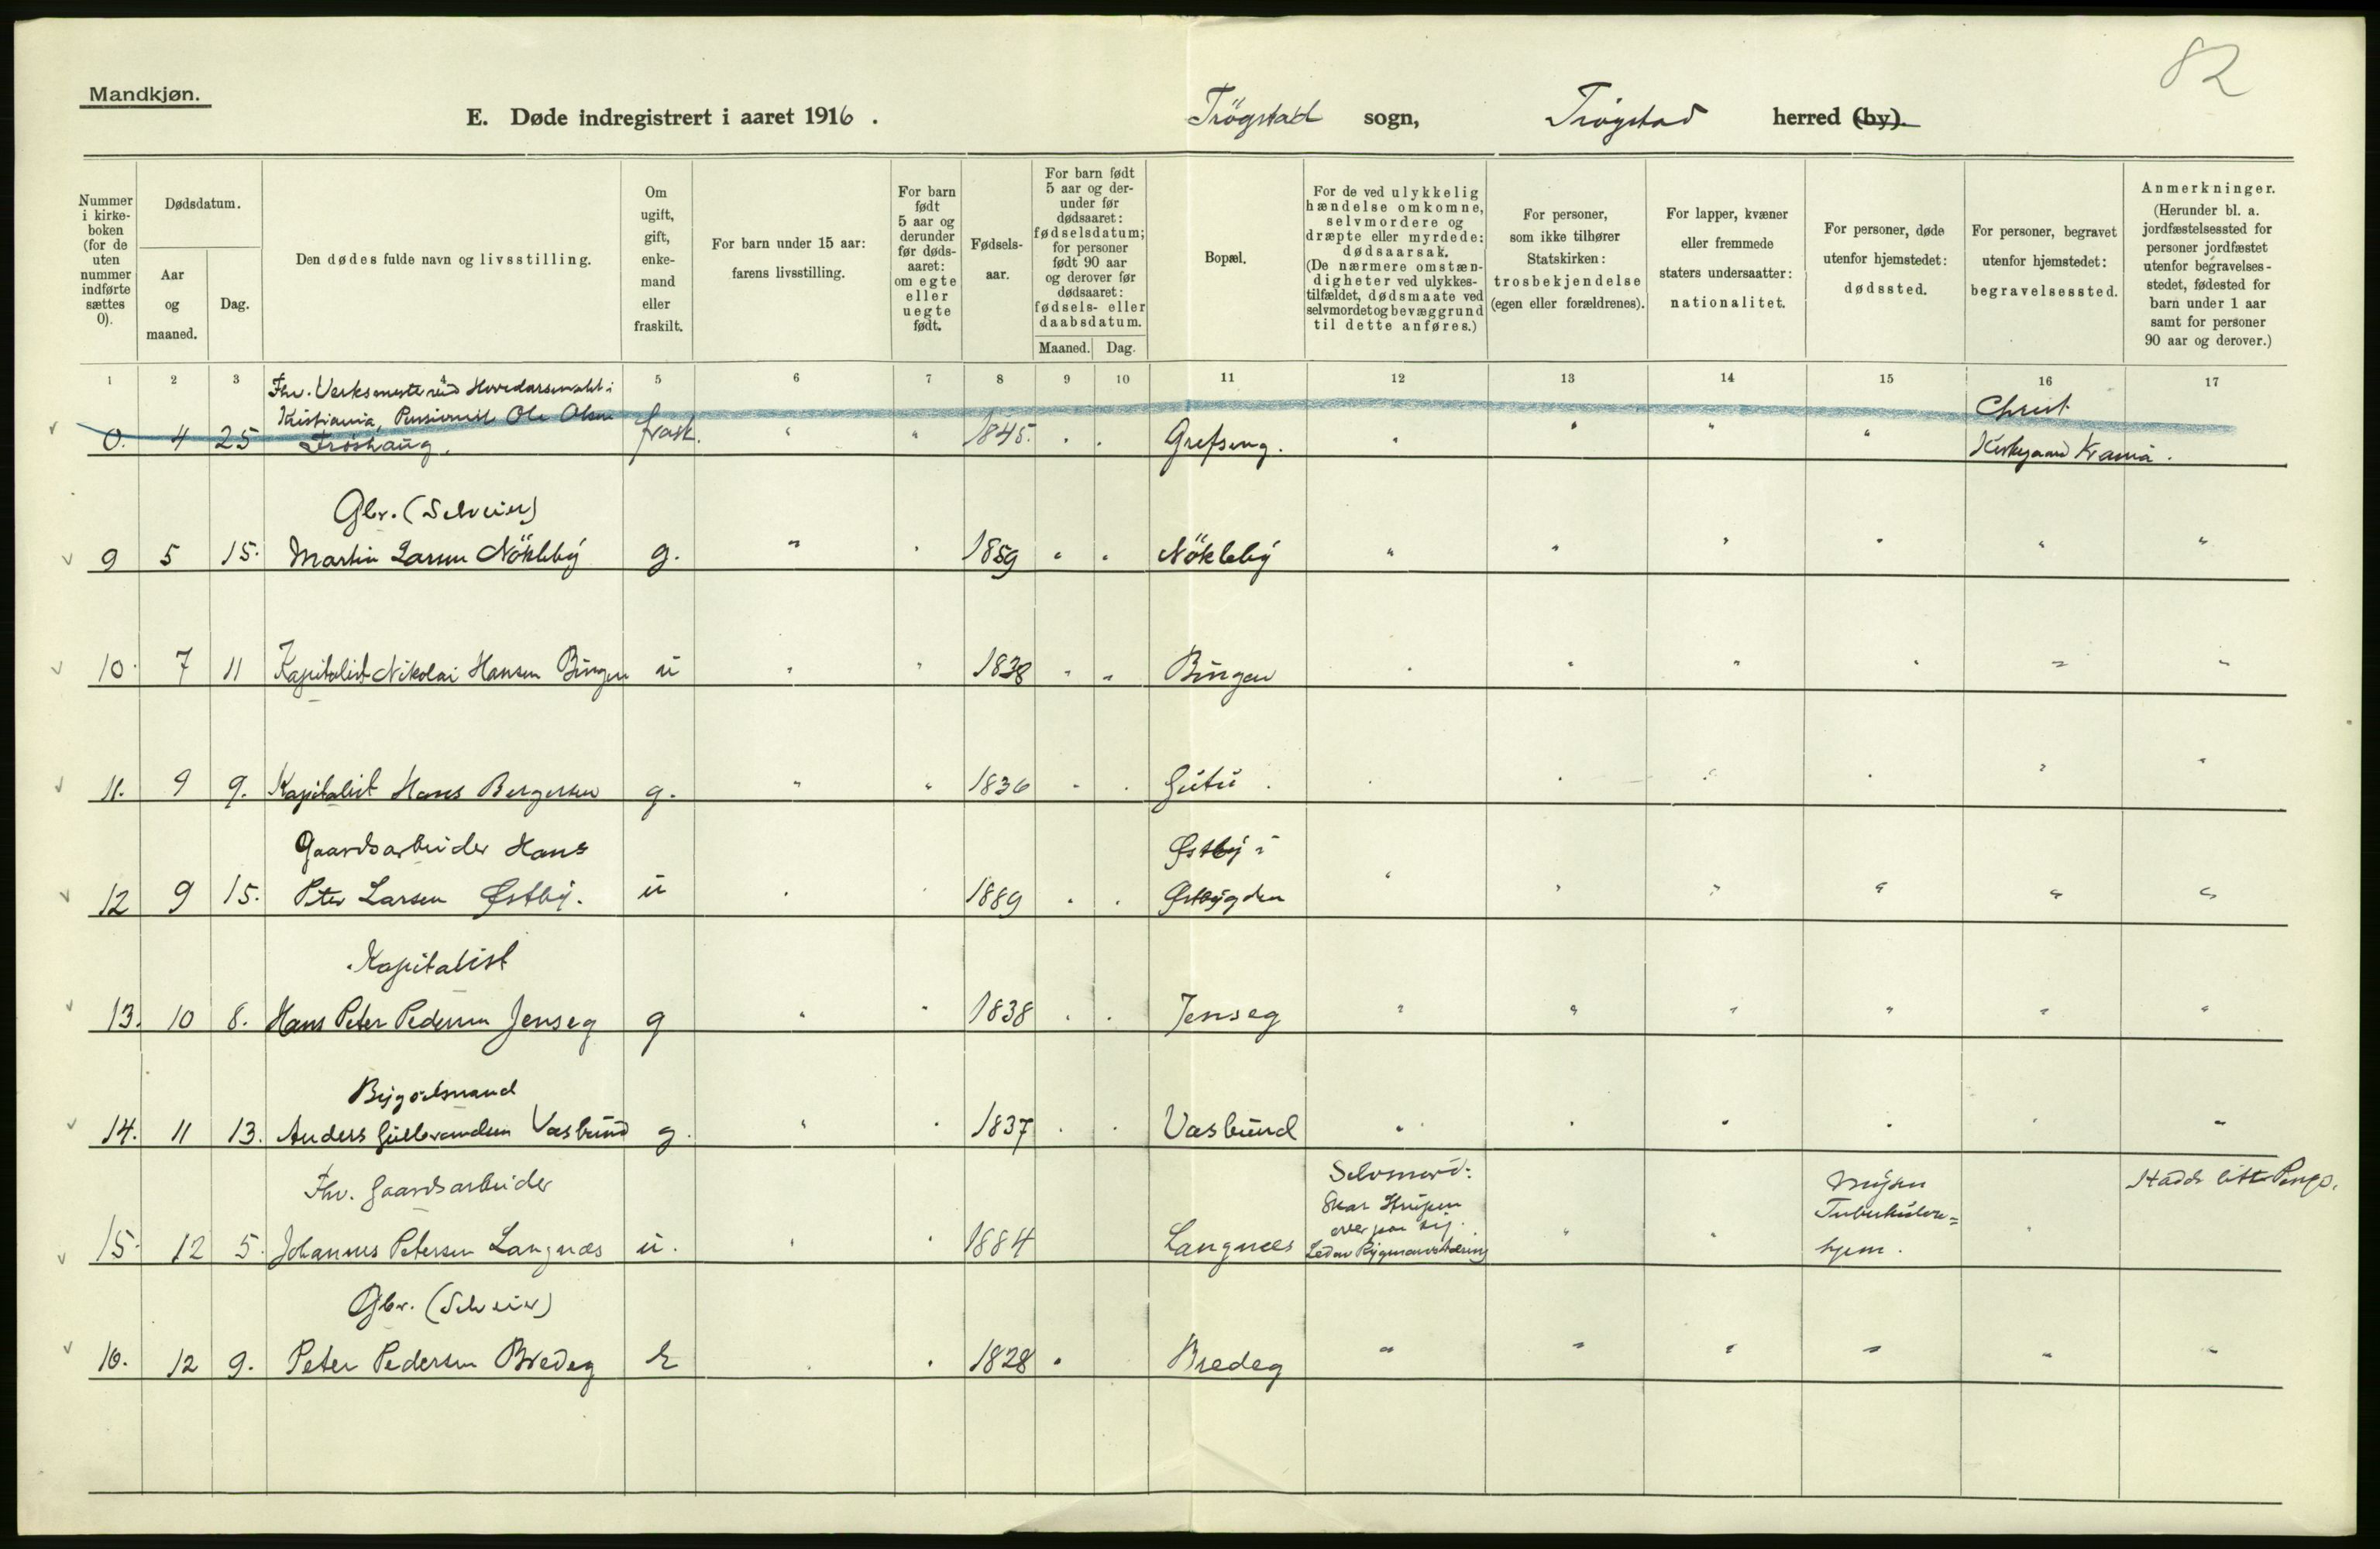 82
Mandkjøn.
E. Døde indregistrert i aaret 1916.
Trögstad sogn, Trögstad herred (by).
Nummer i kirkeboken (for de uten nummer indførte sættes 0).
Dødsdatum.
Aar og maaned.
Dag.
Den dødes fulde navn og livsstilling.
Om ugift, gift, enkemand eller fraskilt.
For barn under 15 aar: farens livsstilling.
For barn født 5 aar og derunder før dødsaaret: om egte eller uegte født.
Fødselsaar.
For barn født 5 aar og derunder før dødsaaret: fødselsdatum; for personer født 90 aar og derover før dødsaaret: fødsels- eller daabsdatum.
Maaned.
Dag.
Bopæl.
For de ved ulykkelig hændelse omkomne, selvmordere og dræpte eller myrdede: dødsaarsak. (De nærmere omstændigheter ved ulykkestilfældet, dødsmaate ved selvmordet og bevæggrund til dette anføres.)
For personer, som ikke tilhører Statskirken: trosbekjendelse (egen eller forældrenes).
For lapper, kvæner eller fremmede staters undersaatter: nationalitet.
For personer, døde utenfor hjemstedet: dødssted.
For personer, begravet utenfor hjemstedet: begravelsessted.
Anmerkninger. (Herunder bl. a. jordfæstelsessted for personer jordfæstet utenfor begravelsesstedet, fødested for barn under 1 aar samt for personer 90 aar og derover.)
1 2 3 4 5 6 7 8 9 10 11 12 13 14 15 16 17
Fhv. Verksmester ved Hovedarsenalet i
Kristiania, Pensionist Ole Olsen Christ
0. 4 25 Fröshaug. frask. " " 1845. " " Grefseng. " " " " Kirkegaard Krania.
Gbr. (Selveier)
9 5 15. Martin Larsen Nökleby g. " " 1859 " " Nökleby " " " " " "
10. 7 11 Kapitalist Nikolai Hansen Bingen u " " 1838 " " Bingen " " " " " "
11. 9 9. Kapitalist Hans Bergersen g. " " 1836 " " Gutu. " " " " " "
Gaardsarbeider Hans Østby i
12 9 15. Peter Larsen Østby. u " " 1889 " " Østbygden " " " " " "
Kapitalist
13. 10 8. Hans Peter Pedersen Jenseg g " " 1838 " " Jenseg " " " " " "
Bygselmand
14. 11 13. Anders Gulbrandsen Vasbund g. " " 1837 " " Vasbund " " " " " "
Fhv. Gaardsarbeider Selvmord: Mysen
Skar Strupen Tuberkulose=
over paa sig.
15. 12 5. Johannes Petersen Langnæs u. " " 1884 Langnæs Led av Rygmarvstæring " " hjem. "
Gbr. (Selveier)
16. 12 9. Peter Pedersen Bredeg E " " 1828 " Bredeg " " " " " "